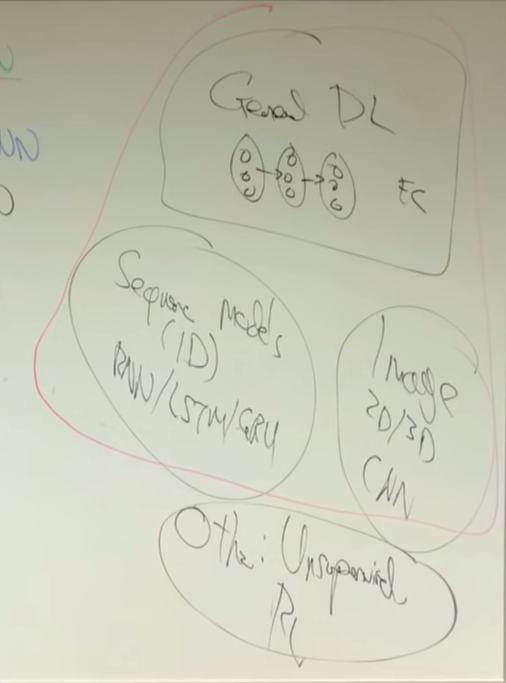 General DL
FC
Sequence Models
(1D)
RNN/LSTM/GRU
Image
2D/3D
CNN
Other: Unsupervised
RL